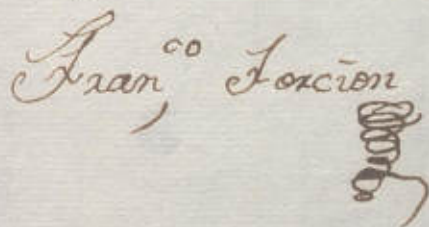 Fran,co Torcion